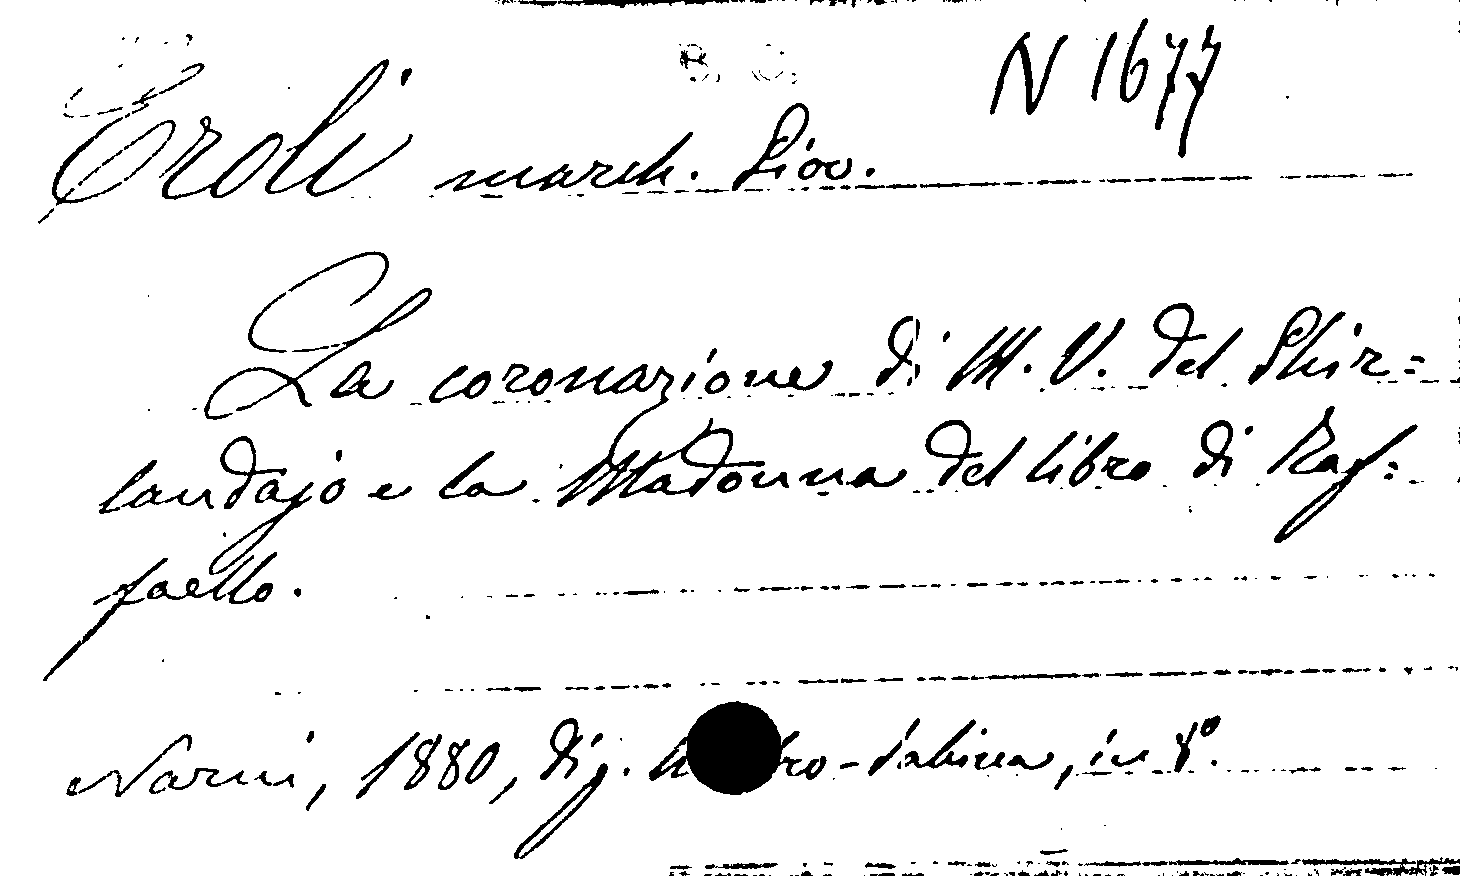 B. C.
N 1677
Eroli march. Giov.
La coronazione di M. V. del Ghir=
landajo e la Madonna del libro di Raf=
faello.
Narni, 1880, tip. bro-Sabina, in 8°.